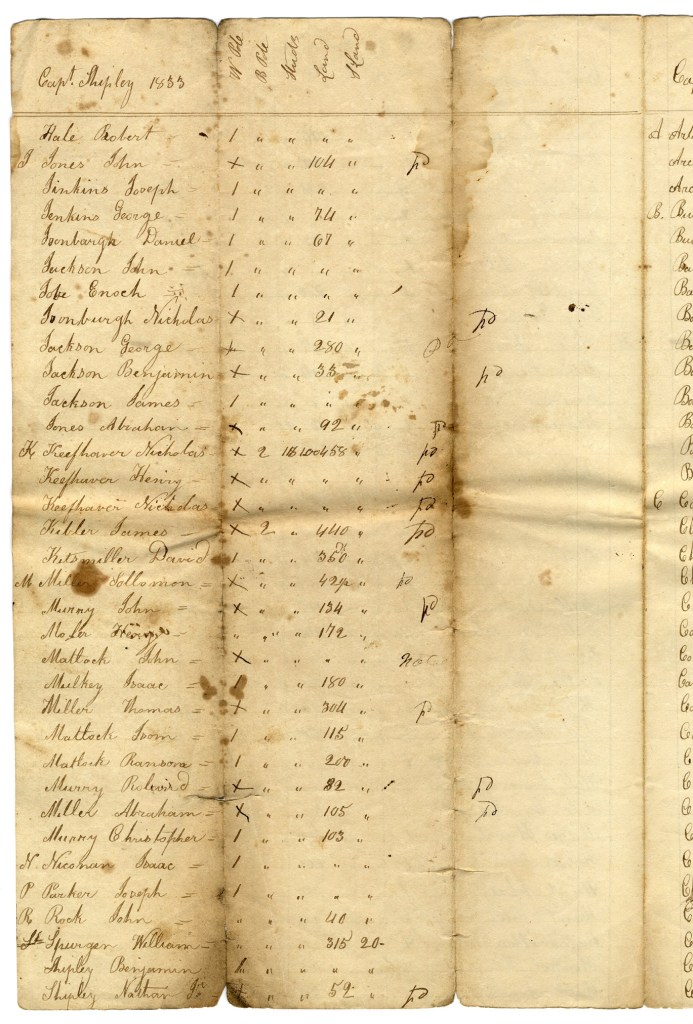 Capt. Shipley 1833 W Pole B Pole Studs Land S Land Ca
Hale Robert - 1 " " " " A
J Jones John - x " " 104 " pd
Jinkins Joseph = 1 " " " "
Jenkins George = 1 " " 74 " B. Bu
Ironbargh Daniel - 1 " " 67 " Bu
Jackson John - 1 " " " " Ba
Jobe Enoch 1 " " " " Ba
Ironburgh Nicholas x " " 21 " pd Bo
Jackson George - x " " 280 " Bo
Jackson Benjamin x " " 33 " pd Bo
Jackson James = 1 " " " Bo
Jones Abraham = x " " 92 " pd B
K Keefhaver Nicholas x 2 18 100 458 " pd B
Keefhaver Henry = x " " " " pd B
Keefhaver Nicholas x " " " " pd C
Keller James = x 2 " 440 " pd Cl
Kitsmiller David 1 " " 350 " Cl
M Miller Sollomon = x " " " pd Cl
Murry John = x " " 134 " pd C
Moser Henry = " " " 172 " Co
Mattock John = x " " " " Co
Mulkey Isaac = 1 " " 180 " Ca
Miller Thomas = x " " 304 " pd Co
Mattock Irom = 1 " " 115 " C
Matlock Ransom = 1 " " 200 " C
Murry = x " " 82 " pd C
Miller Abraham = x " " 105 " pd C
Murry Christopher = 1 " " 103 " C
N. Niconun Isaac = 1 " " " " C
P Parker Joseph = 1 " " " " C
R Rock John = " " " 40 " C
Spurgen William = " " " 315 20- C
Shipley Benjamin " " " " C
Shipley Nathan Jr. x " " 52 " pd C